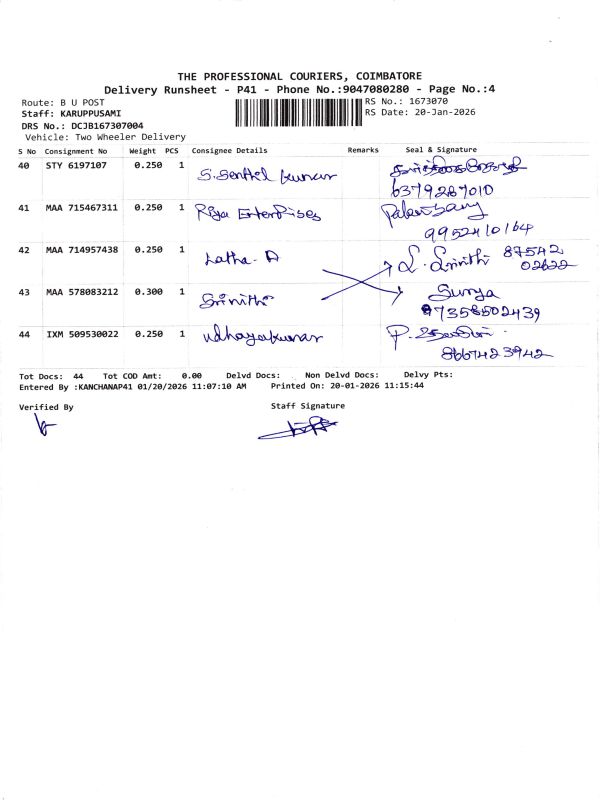 THE PROFESSIONAL COURIERS, COIMBATORE
Delivery Runsheet - P41 - Phone No.:9047080280 - Page No.:4
Route: B U POST RS No.: 1673070
Staff: KARUPPUSAMI RS Date: 20-Jan-2026
DRS No.: DCJB167307004
Vehicle: Two Wheeler Delivery
S No Consignment No Weight PCS Consignee Details Remarks Seal & Signature
40 STY 6197107 0.250 1 S. Senthil kumar
6379287010
41 MAA 715467311 0.250 1 Riya Enterprises
9952410164
42 MAA 714957438 0.250 1 Latha. A L. Srinithi 87542
02622
43 MAA 578083212 0.300 1 Srinithi Surya
7358502439
44 IXM 509530022 0.250 1 udhayakumar
8667423942
Tot Docs: 44 Tot COD Amt: 0.00 Delvd Docs: Non Delvd Docs: Delvy Pts:
Entered By :KANCHANAP41 01/20/2026 11:07:10 AM Printed On: 20-01-2026 11:15:44
Verified By Staff Signature